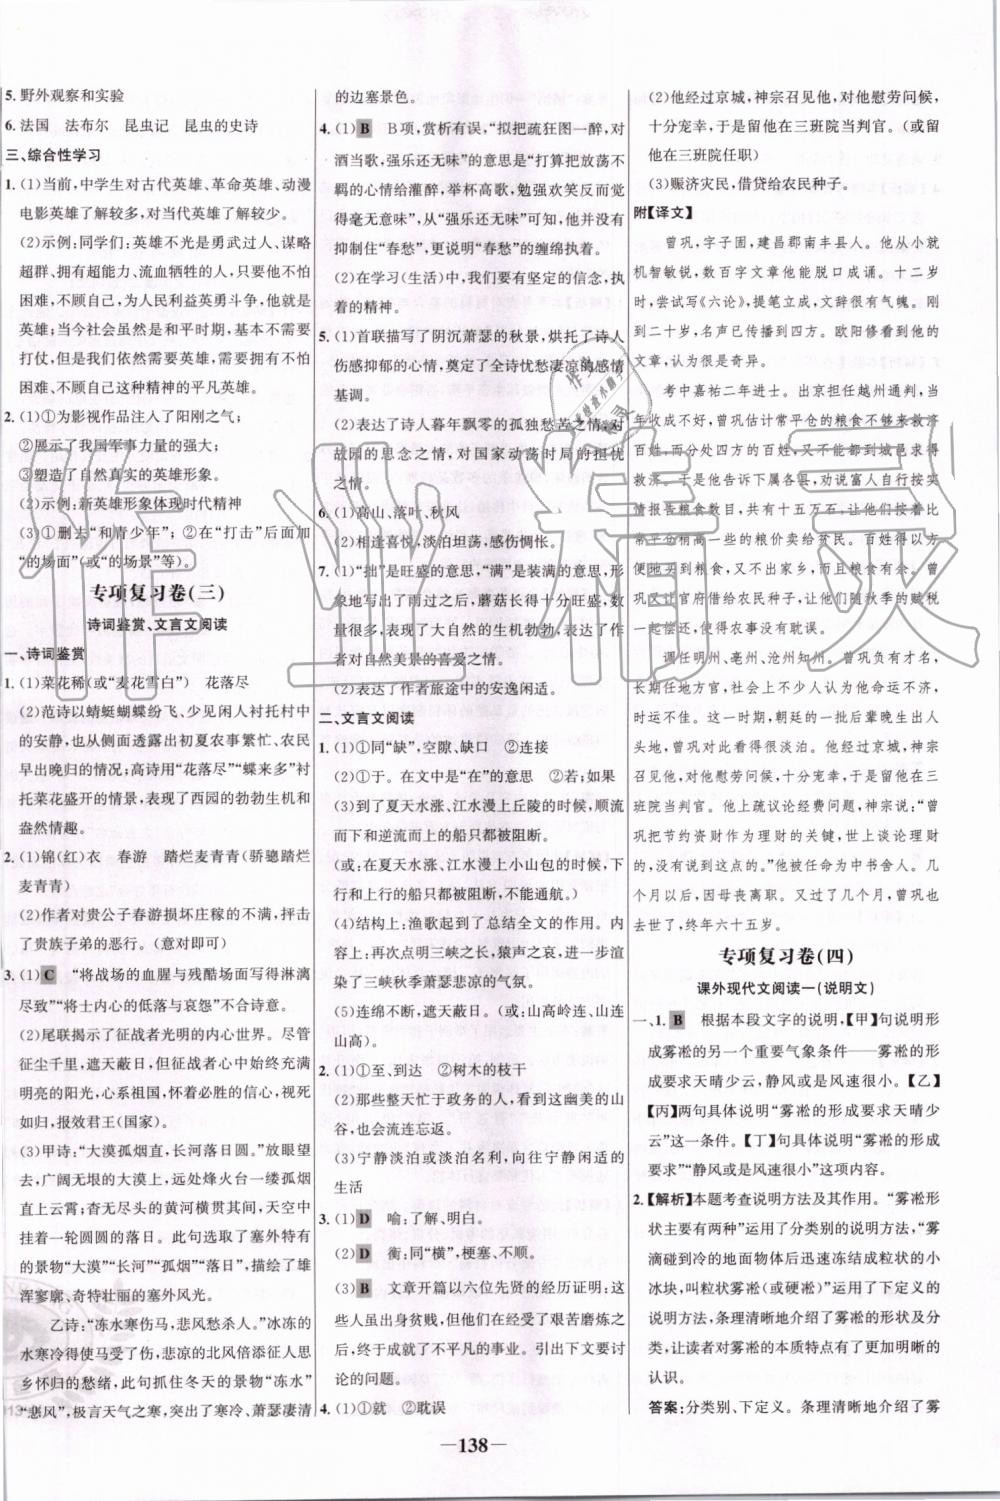 5. 野外观察和实验
6. 法国 法布尔 昆虫记 昆虫的史诗
三、综合性学习
1. (1)当前,中学生对古代英雄、革命英雄、动漫
电影英雄了解较多,对当代英雄了解较少。
(2)示例:同学们;英雄不光是勇武过人、谋略
超群、拥有超能力、流血牺牲的人,只要他不怕
困难,不顾自己,为人民利益英勇斗争,他就是
英雄;当今社会虽然是和平时期,基本不需要
打仗,但是我们还是需要英雄,需要这种不怕
困难、不顾自己这种精神的平凡英雄。
2. (1)①为影视作品注入了阳刚之气;
②展示了我国军事力量的强大;
③塑造了自然真实的英雄形象。
(2)示例:新英雄形象体现时代精神
(3)①删去“和青少年”;②在“打击”后面加
“的场面”(或“的场景”等)。
专项复习卷(三)
诗词鉴赏、文言文阅读
一、诗词鉴赏
1. (1)菜花稀(或“麦花雪白”) 花落尽
(2)范诗以蜻蜓蝴蝶纷飞、少见闲人衬托村中
的安静,也从侧面透露出初夏农事繁忙、农民
早出晚归的情况;高诗用“花落尽”“蝶来多”衬
托菜花盛开的情景,表现了西园的勃勃生机和
盎然情趣。
2. (1)锦(红)衣 春游 踏烂麦青青(骄骢踏烂
麦青青)
(2)作者对贵公子春游损坏庄稼的不满,抨击
了贵族子弟的恶行。(意对即可)
3. (1) C “将战场的血腥与残酷场面写得淋漓
尽致”“将士内心的低落与哀怨”不合诗意。
(2)尾联揭示了征战者光明的内心世界。尽管
征尘千里,遮天蔽日,但征战者心中始终充满
亮丽的阳光,心系祖国,怀着必胜的信心,视死
如归,报效君王(国家)。
(3)甲诗:“大漠孤烟直,长河落日圆。”放眼望
去,广阔无垠的大漠上,远处烽火台一缕孤烟
直上云霄;杳无尽头的黄河横贯其中,天空中
挂着一轮圆圆的落日。此句选取了塞外特有
的景物“大漠”“长河”“孤烟”“落日”,描绘了雄
浑寥廓、奇特壮丽的塞外风光。
乙诗:“冻水寒伤马,悲风愁杀人。”冰冻的
水寒冷得使马受了伤,悲凉的北风倍添征人思
乡怀归的愁绪,此句抓住冬天的景物“冻水”
“悲风”,极言天气之寒,突出了寒冷、萧瑟凄清
的边塞景色。
4. (1) B B项,赏析有误,“拟把疏狂图一醉,对
酒当歌,强乐还无味”的意思是“打算把放荡不
羁的心情给灌醉,举杯高歌,勉强欢笑反而觉
得毫无意味”,从“强乐还无味”可知,他并没有
抑制住“春愁”,更说明“春愁”的缠绵执着。
(2)在学习(生活)中,我们要有坚定的信念,执
着的精神。
5. (1)首联描写了阴沉萧瑟的秋景,烘托了诗人
伤感抑郁的心情,奠定了全诗忧愁凄凉的感情
基调。
(2)表达了诗人暮年飘零的孤独愁苦之情;对
故园的思念之情,对国家动荡时局的担忧
之情。
6. (1)高山、落叶、秋风
(2)相逢喜悦,淡泊坦荡,感伤惆怅。
7. (1)“拙”是旺盛的意思,“满”是装满的意思,形
象地写出了雨过之后,蘑菇长得十分旺盛,数
量很多,表现了大自然的生机勃勃,表达了作
者对自然美景的喜爱之情。
(2)表达了作者旅途中的安逸闲适。
二、文言文阅读
1. (1)①同“缺”,空隙、缺口 ②连接
(2)①于。在文中是“在”的意思 ②若;如果
(3)到了夏天水涨、江水漫上丘陵的时候,顺流
而下和逆流而上的船只都被阻断。
(或:在夏天水涨、江水漫上小山包的时候,
下行和上行的船只都被阻断,不能通航。)
(4)结构上:渔歌起到了总结全文的作用。内容
上:再次点明三峡之长、猿声之哀,进一步渲
染了三峡秋季萧瑟悲凉的气氛。
(5)连绵不断,遮天蔽日。(或:山高岭连、山连
山高)。
2. (1)①至、到达 ②树木的枝干
(2)那些整天忙于政务的人,看到这幽美的山
谷,也会流连忘返。
(3)宁静淡泊或淡泊名利,向往宁静闲适的
的生活
3. (1) D 喻:了解、明白。
(2) D 衡:同“横”,梗塞、不顺。
(3) B 文章开篇以六位先贤的经历证明:这
些人虽出身贫贱,但他们在经受了艰苦磨炼之
后,最终成就了不平凡的事业。引出下文要讨
论的问题。
4. (1)①就 ②耽误
(2)他经过京城,神宗召见他,对他慰劳问候,
十分宠幸,于是留在三班院当判官。(或留
他在三班院任职)
(3)赈济灾民,借贷给农民种子。
附【译文】
曾巩,字子固,建昌郡南丰县人。他从小就
机智敏锐,数百字文章他能脱口成诵。十二岁
时,尝试写《六论》,提笔立成,文辞很有气魄。刚
到二十岁,名声已传播到四方。欧阳修看到他的
文章,认为很是奇异。
考中嘉祐二年进士。出京担任越州通判,当
年收成不好,曾巩估计常平仓的粮食不够来救济
百姓,而分处四方的百姓,又不可能都到城邑来寻求
救济。于是他告诉下属各县,劝说富人自行按实
情报告粮食数目,共有十五万石,让他们按着比
常平价稍高一些的粮价卖给百姓。百姓得以方
便地买到粮食,又不出家乡,而且粮食有余。他
又让官府借贷给农民种子,让他们随秋季的赋税
一起偿还,使得农事没有耽误。
调任明州、亳州、沧州知州。曾巩负有才名,
长期任地方官,世上不少人认为他命运不济,
时运不佳。这一时候,朝廷的一批后辈晚生出人
头地,曾巩对此看得很淡漠。他经过京城,神宗
召见他,对他慰劳问候,十分宠幸,于是留在三
班院当判官。他上疏议论经费问题,神宗说:“曾
巩把节约资财作为理财的关键,世上谈论理财
的,没有说到这点的。”他被任命为中书舍人。几
个月以后,因母丧离职。又过了几个月,曾巩也
去世了,终年六十五岁。
专项复习卷(四)
课外现代文阅读一(说明文)
一、1. B 根据本段文字的说明,【甲】句说明形
成雾凇的另一个重要气象条件——雾凇的形
成要求天晴少云,静风或是风速很小。【乙】
【丙】两句具体说明“雾凇的形成要求天晴少
云”这一条件。【丁】句具体说明“雾凇的形成
要求”“静风或是风速很小”这项内容。
2.【解析】本题考查说明方法及其作用。“雾凇形
状主要有两种”运用了分类别的说明方法,“雾
滴碰到冷的地面物体后迅速冻结成粒状的小
冰块,叫粒状雾凇(或硬凇)”运用了下定义的
说明方法。条理清晰地介绍了雾凇的形状及分
类,让读者对雾凇的本质特点有了更加明晰的
的认识。
答案:分类别、下定义。条理清晰地介绍了雾
—138—
作业精灵